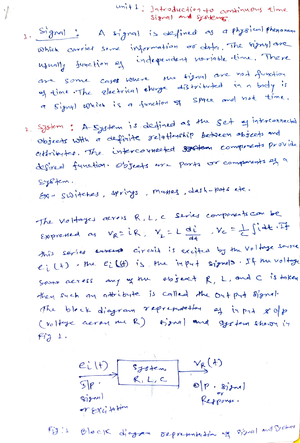 unit 1: Introduction to continuous time
Signal and Systems
1. Signal : A signal is defined as a physical phenomenon
which carries some information or data. The signal are
usually function of independent variable time. There
are some cases where the signal are not function
of time. The electrical charge distributed in a body is
a signal which is a function of space and not time.
2. System : A System is defined as the set of interconnected
objects with a definite relationship between objects and
attributes. The interconnected components provide
desired function. Objects are parts or components of a
System.
Ex- switches, springs, masses, dash-pots etc.
The voltages across R, L, C series components can be
expressed as VR = iR, VL = L di/dt, VC = 1/C ∫ i dt. If
this series circuit is excited by the voltage source
ei(t). the ei(t) is the input signal. If the voltage
across any of the object R, L, and C is taken
then such an attribute is called the output signal.
The block diagram representation of input & o/p
(voltage across R) signal and system shown in
Fig 1.
ei(t) System R, L, C VR(t)
I/p signal or Excitation
O/p signal or Response.
Fig:1 Block diagram representation of signal and System